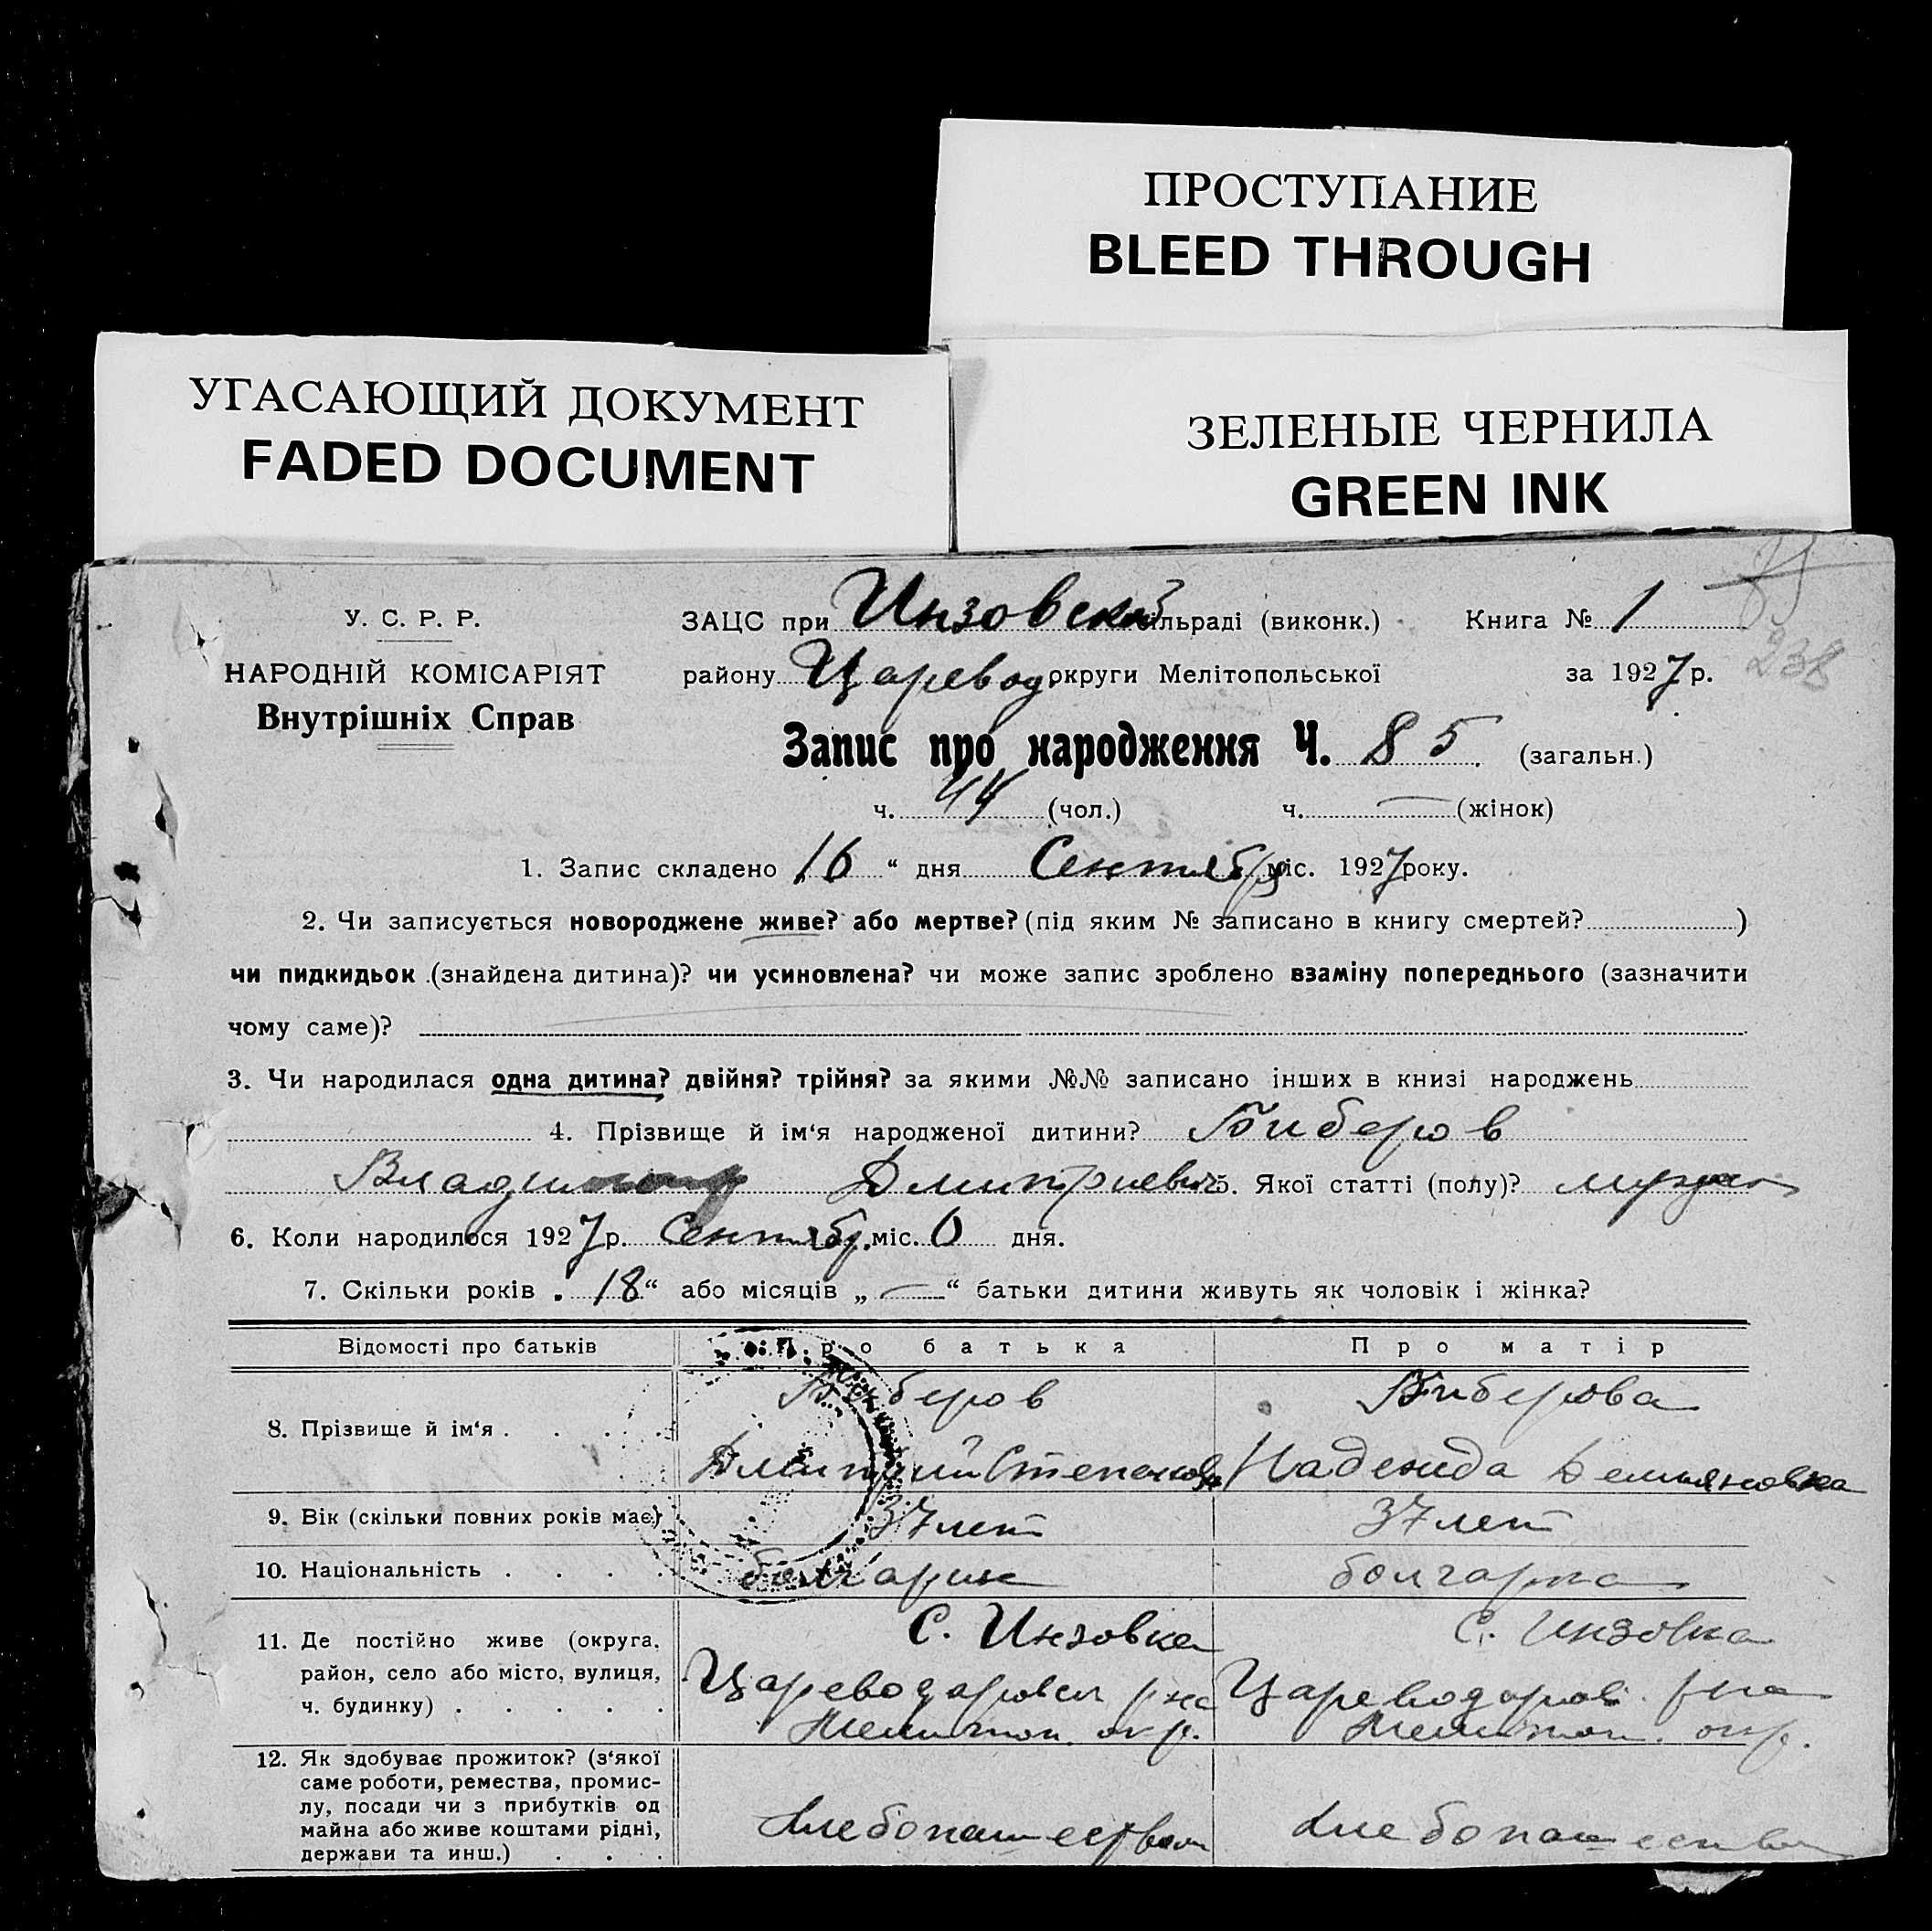 ПРОСТУПАНИЕ
BLEED THROUGH
УГАСАЮЩИЙ ДОКУМЕНТ
FADED DOCUMENT
ЗЕЛЕНЫЕ ЧЕРНИЛА
GREEN INK
238
У. С. Р. Р.
НАРОДНІЙ КОМІСАРІЯТ
Внутрішніх Справ
ЗАЦС при Инзовской сільраді (виконк.) Книга № 1
району Царевод. округи Мелітопольської за 1927 р.
Запис про народження Ч. 85 (загальн.)
ч. 44 (чол.) ч. — (жінок)
1. Запис складено „16“ дня Сентября міс. 1927 року.
2. Чи записується новороджене живе? або мертве? (під яким № записано в книгу смертей? )
чи пидкидьок (знайдена дитина)? чи усиновлена? чи може запис зроблено взаміну попереднього (зазначити
чому саме)?
3. Чи народилася одна дитина? двійня? трійня? за якими №№ записано інших в книзі народжень
4. Прізвище й ім‘я народженої дитини? Биберов
Владимир Дмитриевич 5. Якої статті (полу)? мужс
6. Коли народилося 1927 р. Сентябр. міс. дня.
7. Скільки років „18“ або місяців „—“ батьки дитини живуть як чоловік і жінка?
Відомості про батьків Про батька Про матір
8. Прізвище й ім‘я . . . . Биберов Биберова
Дмитрий Степанов. Надежда Демьяновна
9. Вік (скільки повних років має) 37 лет 37 лет
10. Національність . . . . болгарин болгарка
11. Де постійно живе (округа, район, село або місто, вулиця, ч. будинку) . . . . .
С. Инзовка С. Инзовка
Цареводаровск р-на Цареводаров. р-на
Мелитоп. окр. Мелитоп. окр.
12. Як здобуває прожиток? (з‘якої
саме роботи, ремества, промис-
лу, посади чи з прибутків од
майна або живе коштами рідні,
держави та инш.) . . .
Хлебопашеством Хлебопашеством